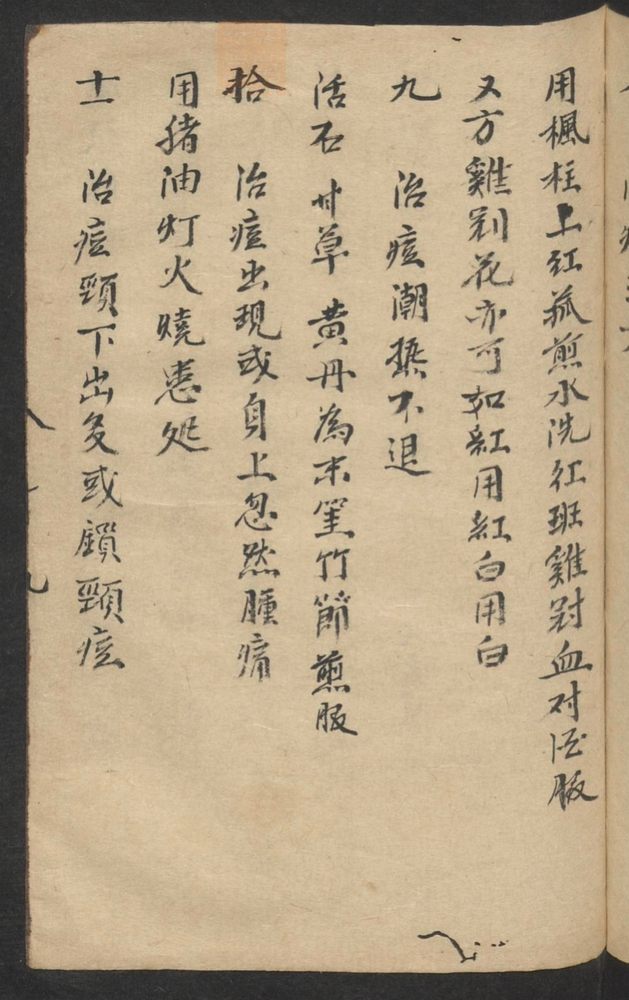 用楓柱上紅菰煎水洗紅班雞冠血对酒服
又方雞冠花亦可如紅用紅白用白
九 治痘潮热不退
活石 甘草 黄丹為末筀竹節煎服
拾 治痘出現或身上忽然腫痛
用猪油灯火燒患処
十一 治痘頸下出多或鎖頸痘